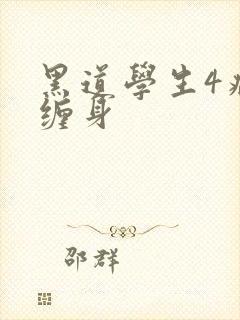 黑道學生4
缠身
邵群